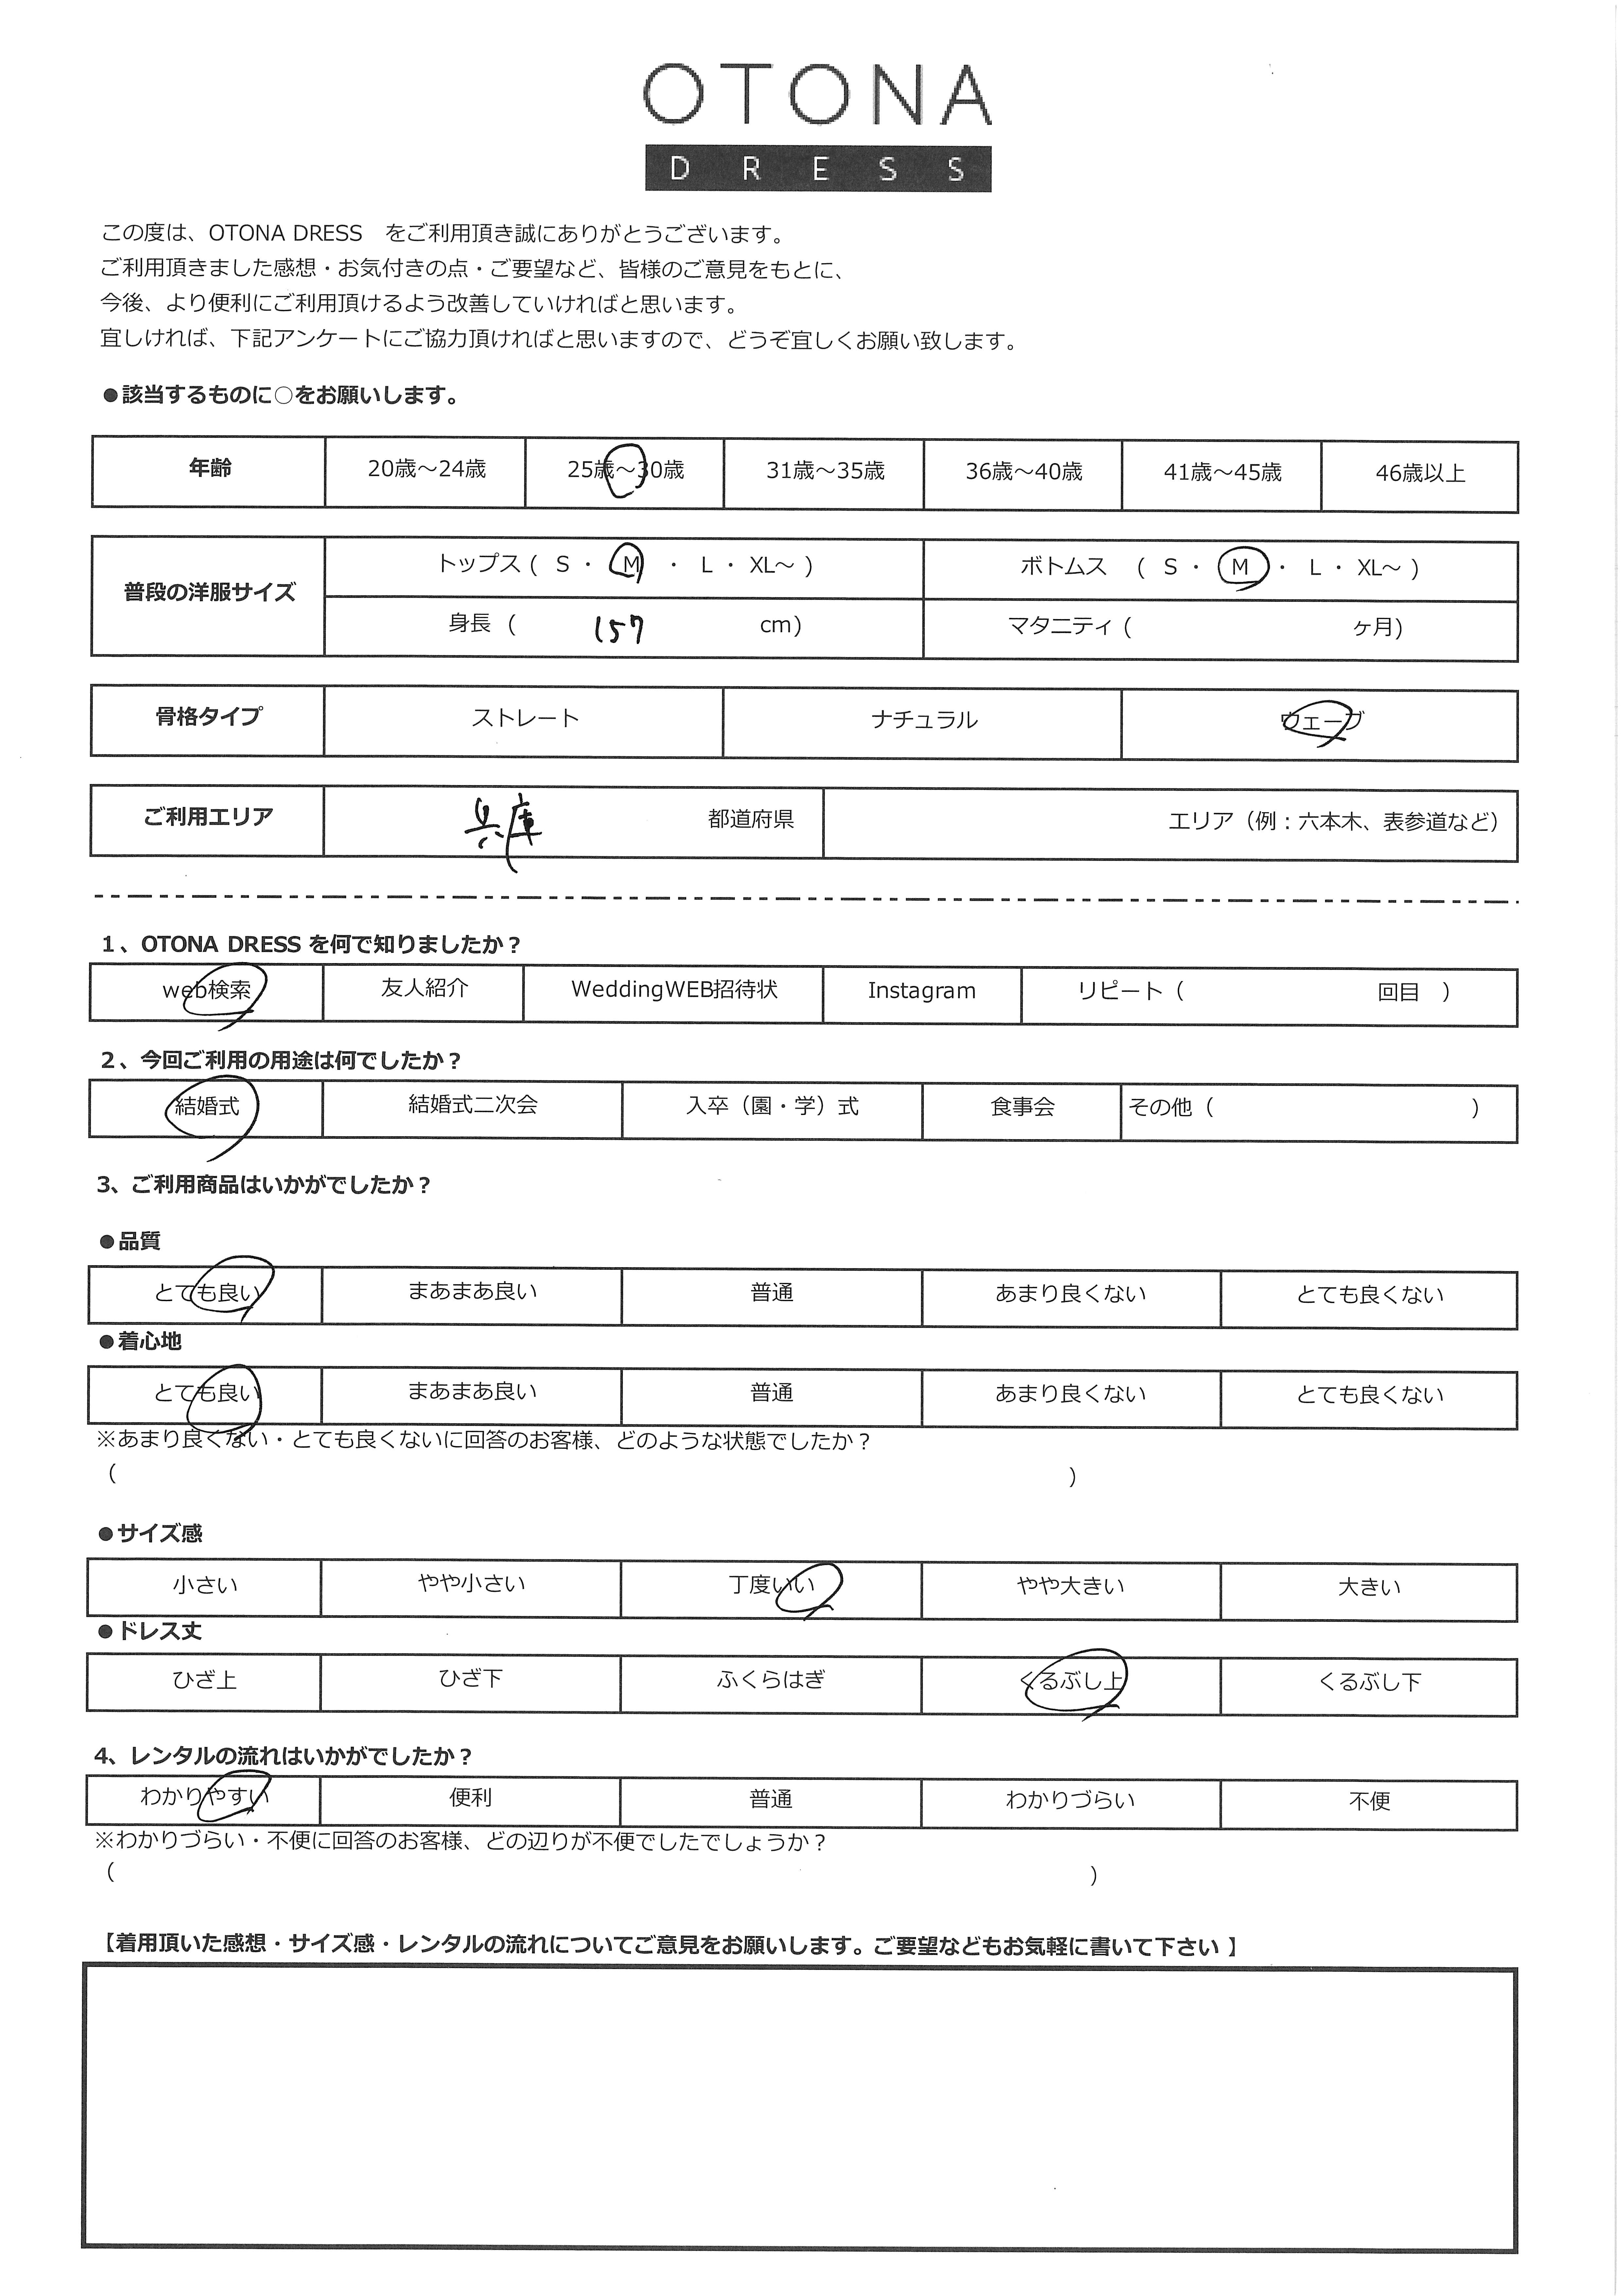 OTONA
DRESS
この度は、OTONA DRESS　をご利用頂き誠にありがとうございます。
ご利用頂きました感想・お気付きの点・ご要望など、皆様のご意見をもとに、
今後、より便利にご利用頂けるよう改善していければと思います。
宜しければ、下記アンケートにご協力頂ければと思いますので、どうぞ宜しくお願い致します。
●該当するものに○をお願いします。
年齢 20歳～24歳 25歳～30歳 31歳～35歳 36歳～40歳 41歳～45歳 46歳以上
普段の洋服サイズ
トップス（ S ・ M ・ L ・ XL～ ） ボトムス （ S ・ M ・ L ・ XL～ ）
身長（ 157 cm） マタニティ（ ヶ月）
骨格タイプ ストレート ナチュラル ウェーブ
ご利用エリア 兵庫 都道府県 エリア（例：六本木、表参道など）
1、OTONA DRESS を何で知りましたか？
web検索 友人紹介 WeddingWEB招待状 Instagram リピート（ 回目 ）
2、今回ご利用の用途は何でしたか？
結婚式 結婚式二次会 入卒（園・学）式 食事会 その他（ ）
3、ご利用商品はいかがでしたか？
●品質
とても良い まあまあ良い 普通 あまり良くない とても良くない
●着心地
とても良い まあまあ良い 普通 あまり良くない とても良くない
※あまり良くない・とても良くないに回答のお客様、どのような状態でしたか？
（ ）
●サイズ感
小さい やや小さい 丁度いい やや大きい 大きい
●ドレス丈
ひざ上 ひざ下 ふくらはぎ くるぶし上 くるぶし下
4、レンタルの流れはいかがでしたか？
わかりやすい 便利 普通 わかりづらい 不便
※わかりづらい・不便に回答のお客様、どの辺りが不便でしたでしょうか？
（ ）
【着用頂いた感想・サイズ感・レンタルの流れについてご意見をお願いします。ご要望などもお気軽に書いて下さい 】